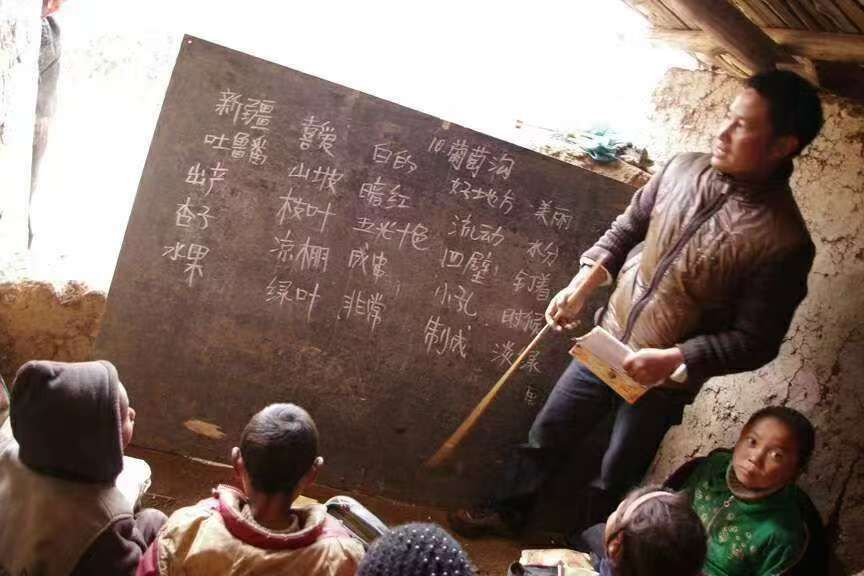 新疆 喜爱 白的 10葡萄沟
吐鲁番 山坡 暗红 好地方 美丽
出产 枝叶 五光十色 流动 水分
杏子 凉棚 成串 四壁 钉着
水果 绿叶 非常 小孔 时候
制成 淡